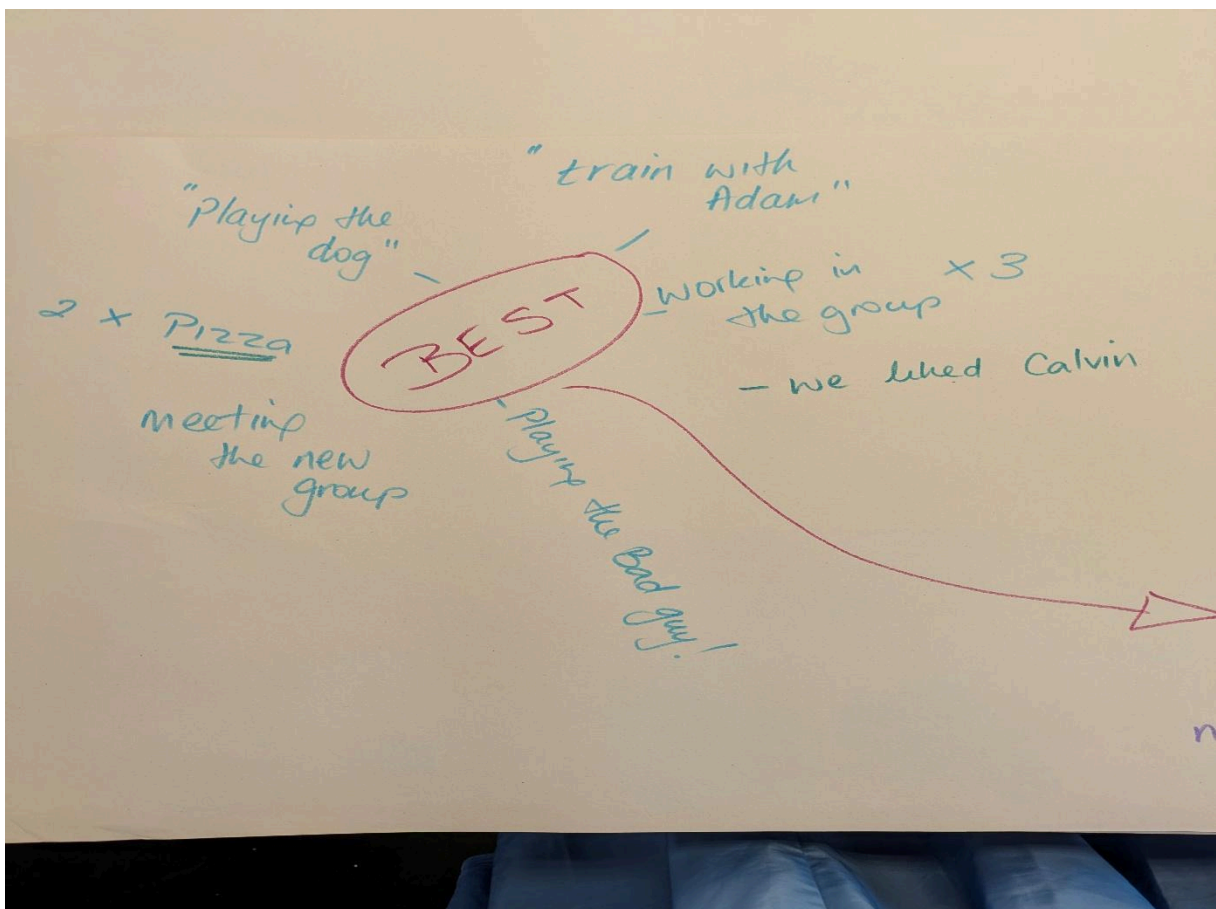 "train with
Adam"
"Playing the
dog"
BEST
working in × 3
the group
- we liked Calvin
2 × Pizza
meeting
the new
group
- Playing the Bad guy!
n